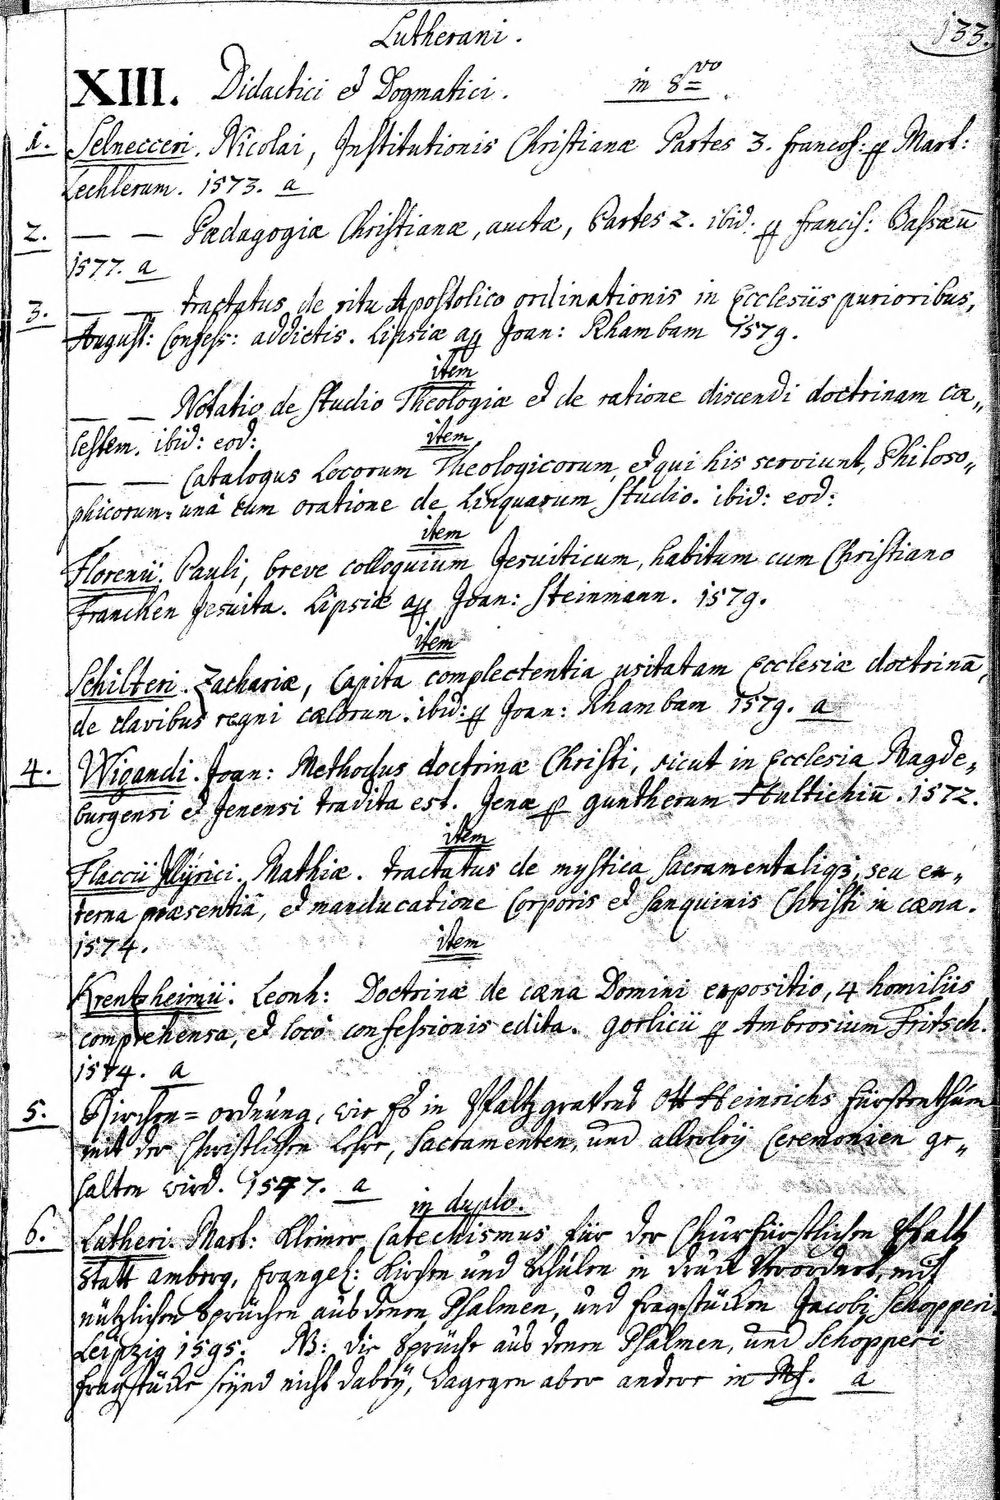 Lutherani.
133.
XIII. Didactici et Dogmatici. in 8vo.
1. Selnecceri. Nicolai, Institutionis Christianæ Partes 3. francof: p Mart:
Lechlerum. 1573. a
2. — — Pædagogiæ Christianæ, auctæ, Partes 2. ibid: p francis: Bassæū
1577. a
3. — — tractatus de ritu Apostolico ordinationis in Ecclesiis purioribus,
August: Confess: addictis. Lipsiæ ap Joan: Rhambam 1579.
item
— — Notatio de studio Theologiæ et de ratione discendi doctrinam cœ„
lestem. ibid: eod:
item
— — Catalogus Locorum Theologicorum, et qui his serviunt, Philoso„
phicorum: unâ cum oratione de Linguarum studio. ibid: eod:
item
Florenii. Pauli, breve colloquium Jesuiticum, habitum cum Christiano
Francken Jesuita. Lipsiæ ap Joan: Steinmann. 1579.
item
Schilteri. Zachariæ, Capita complectentia usitatam Ecclesiæ doctrinā,
de clavibus regni cælorum. ibid: p Joan: Rhambam 1579. a
4. Wigandi. Joan: Methodus doctrinæ Christi, sicut in Ecclesia Magde„
burgensi et Jenensi tradita est. Jenæ p guntherum Hultichiū. 1572.
item
Flaccii Illyrici. Mathiæ. tractatus de mystica sacramentaliq3, seu ex„
terna præsentiâ, et manducatione Corporis et sanguinis Christi in cæna.
1574.
item
Krentzheimii. Leonh: Doctrinæ de cæna Domini expositio, 4 homiliis
comprehensa, et locô confessionis edita. gorlicii p Ambrosium Fritsch.
1574. a
5. Kirchen= ordnung, wie Es in Pfaltzgraffens Ott Heinrichs fürstenthum
mit der Christlichen Lehre, Sacramenten, und allerley Ceremonien ge„
halten wird. 1547. a
in duplo.
6. Lutheri. Mart: Kleiner Catechismus für der Churfürstlichen Pfaltz
Statt Amberg, Evangel: Kirchen und Schulen in druck Verordnet, mit
nützlichen Sprüchen aus denen Psalmen, und fragstücken Jacobi Schopperi
Leipzig 1595. NB: die Sprüche aus denen Psalmen, und Schopperi
fragstücke seynd nicht dabey, dagegen aber andere in Mf. a